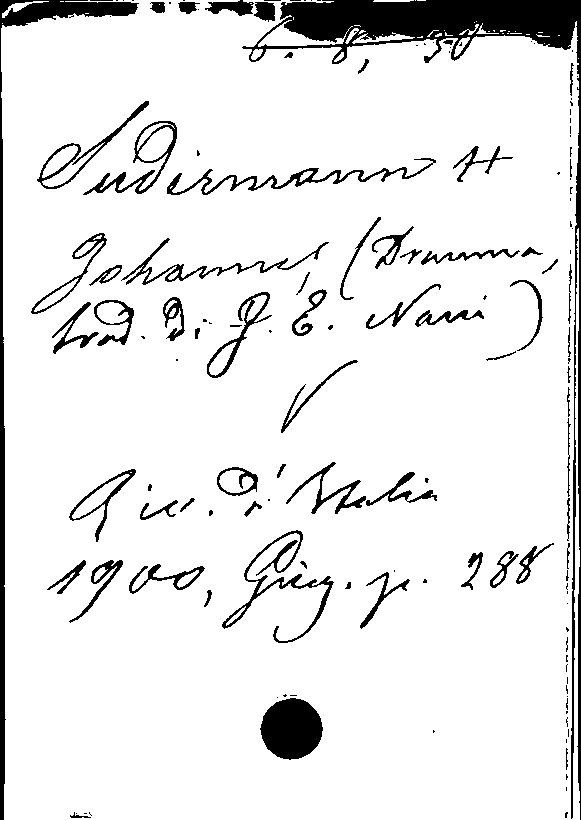 6. 8, 38
Sudermann H
Johannes, (Dramma,
trad. di J. E. Nani)
Riv. d'Italia
1900, Giug. p. 288